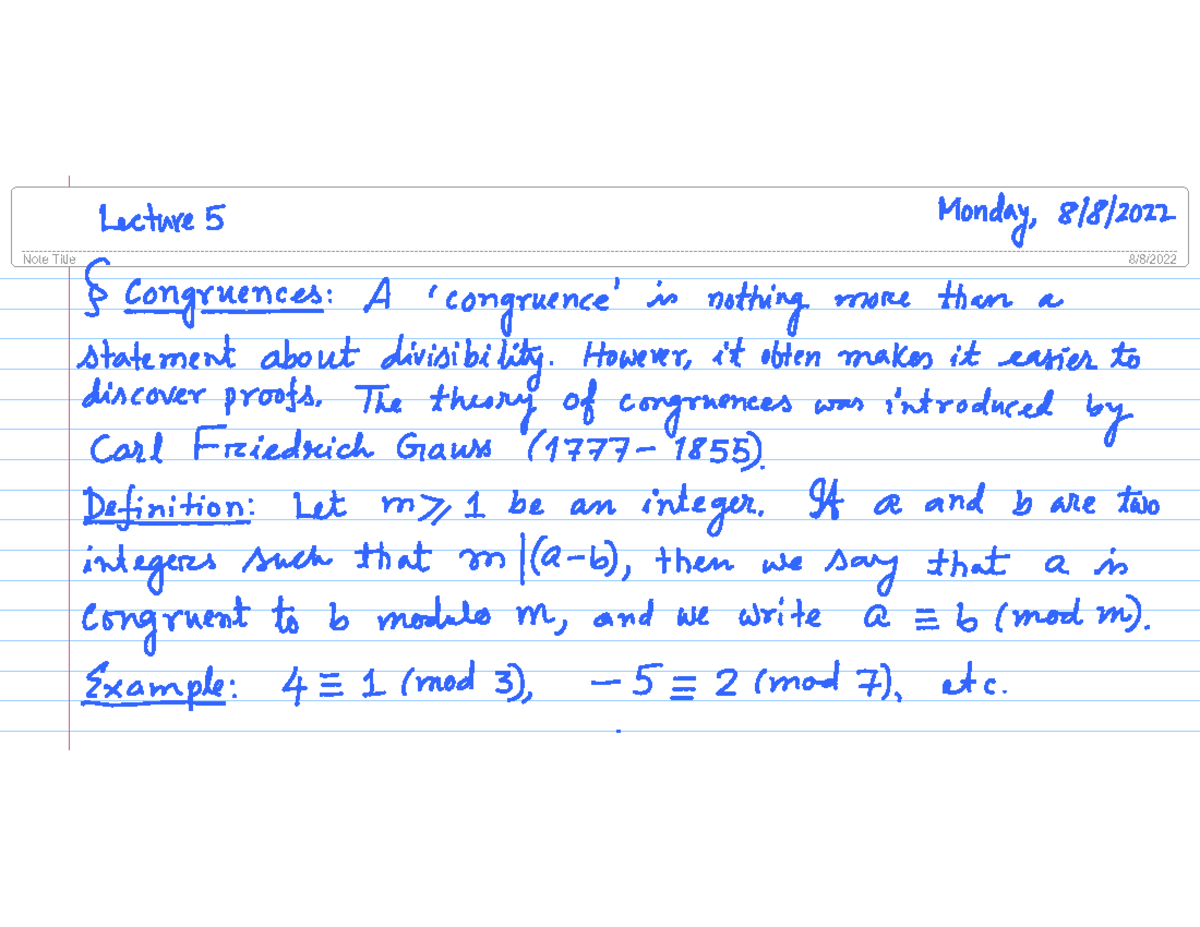 Lecture 5
Monday, 8/8/2022
Note Title
8/8/2022
§ Congruences: A 'congruence' is nothing more than a
statement about divisibility. However, it often makes it easier to
discover proofs. The theory of congruences was introduced by
Carl Friedrich Gauss (1777-1855).
Definition: Let m ⩾ 1 be an integer. If a and b are two
integers such that m|(a-b), then we say that a is
congruent to b modulo m, and we write a ≡ b (mod m).
Example: 4 ≡ 1 (mod 3), -5 ≡ 2 (mod 7), etc.